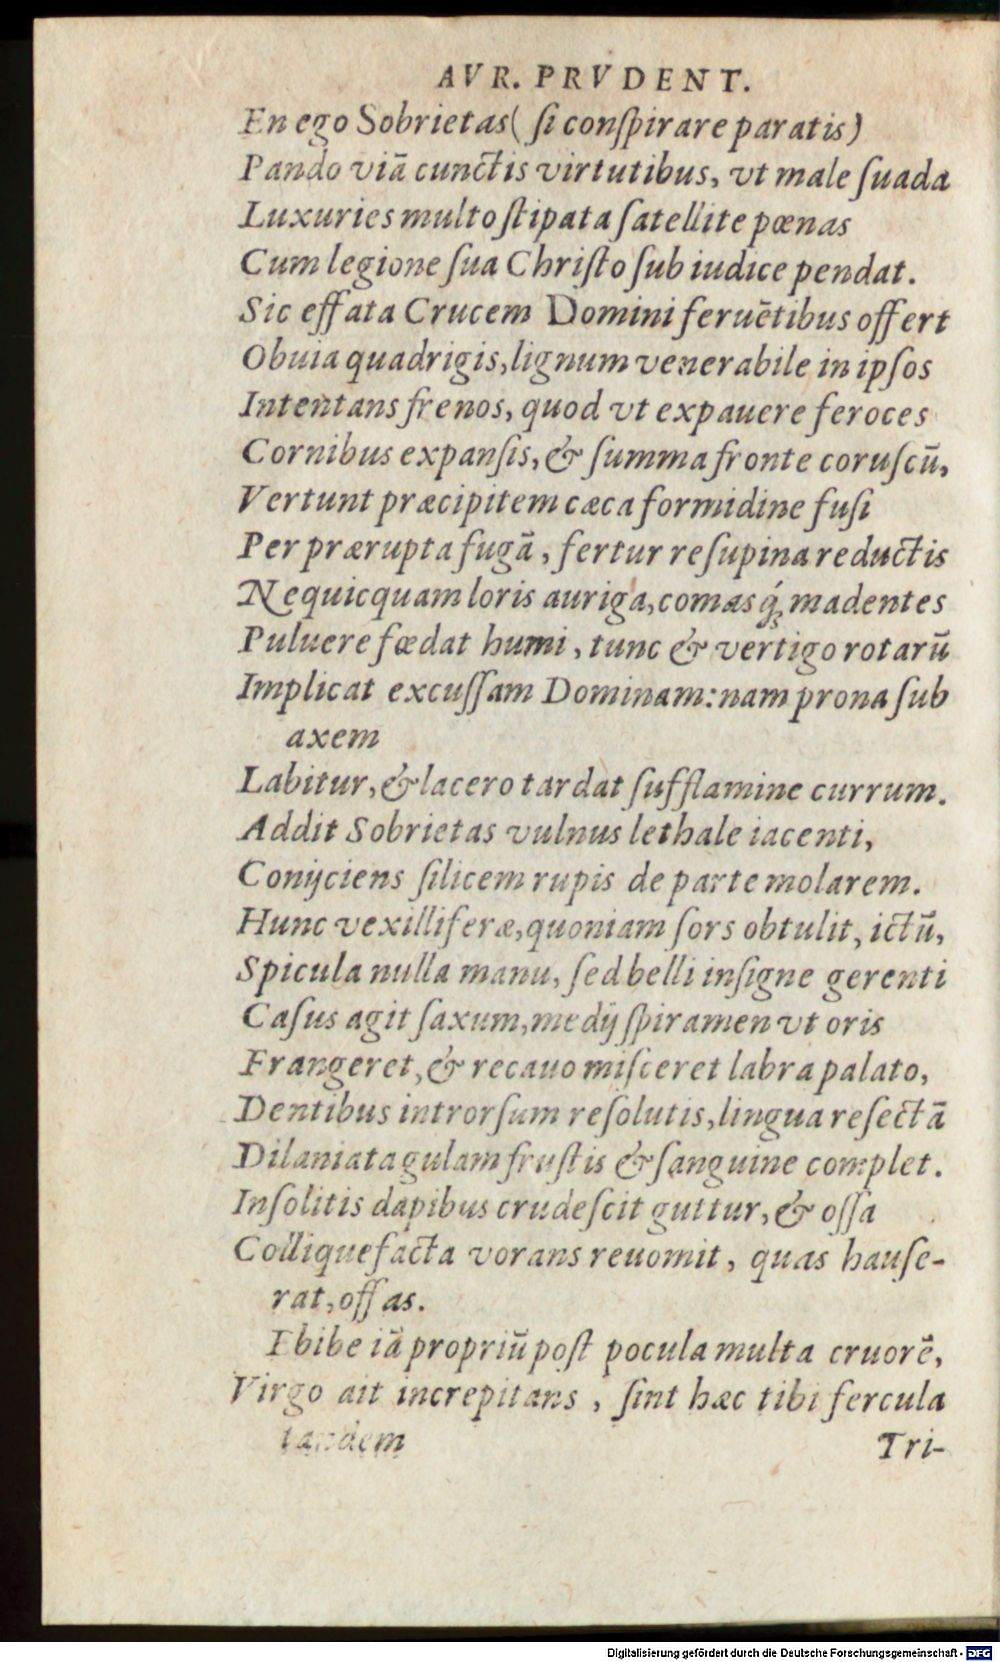 AVR. PRVDENT.
En ego Sobrietas( ſi conſpirare paratis)
Pando viā cunctis virtutibus, vt male ſuada
Luxuries multo ſtipata ſatellite pœnas
Cum legione ſua Chriſto ſub iudice pendat.
Sic effata Crucem Domini feruētibus offert
Obuia quadrigis, lignum venerabile in ipſos
Intentans frenos, quod vt expauere feroces
Cornibus expanſis, & ſumma fronte coruſcū,
Vertunt præcipitem cæca formidine fuſi
Per prærupta fugā, fertur reſupina reductis
Nequicquam loris auriga, comasq́; madentes
Puluere fœdat humi, tunc & vertigo rotarū
Implicat excuſſam Dominam: nam prona ſub
axem
Labitur, & lacero tardat ſufflamine currum.
Addit Sobrietas vulnus lethale iacenti,
Conijciens ſilicem rupis de parte molarem.
Hunc vexilliferæ, quoniam ſors obtulit, ictū,
Spicula nulla manu, ſed belli inſigne gerenti
Caſus agit ſaxum, medij ſpiramen vt oris
Frangeret, & recauo miſceret labra palato,
Dentibus introrſum reſolutis, lingua reſectā
Dilaniata gulam fruſtis & ſanguine complet.
Inſolitis dapibus crudeſcit guttur, & oſſa
Colliquefacta vorans reuomit, quas hauſe-
rat, offas.
Ebibe iā propriū poſt pocula multa cruorē,
Virgo ait increpitans, ſint hæc tibi fercula
tandem
Tri-
Digitalisierung gefördert durch die Deutsche Forschungsgemeinschaft - DFG